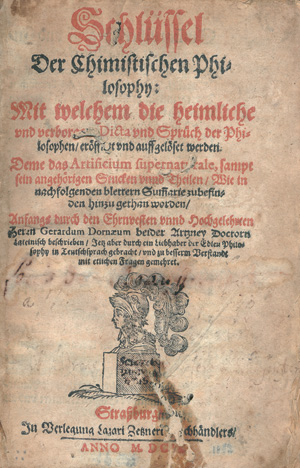 Schlüssel
Der Chimistischen Phi-
losophy:
Mit welchem die heimliche
vnd verborgene Dicta vnd Sprüch der Phi-
losophen/ eröffnet vnd auffgelöset werden.
Deme das Artificium supernaturale, sampt
sein angehörigen Stucken vnnd Theilen/ Wie in
nachfolgenden blettern Summarie zubefin-
den hinzu gethan worden/
Anfangs durch den Ehrnvesten vnnd Hochgelehrten
Herrn Gerardum Dornæum beider Artzney Doctorn
Lateinisch beschrieben/ Jetz aber durch ein liebhaber der Edlen Philo-
sophy in Teutschsprach gebracht/ vnd zu besserm Verstandt
mit etlichen Fragen gemehret.
Straßburg
In Verlegung Lazari Zetzneri Buchhändlers/
ANNO M. DC.